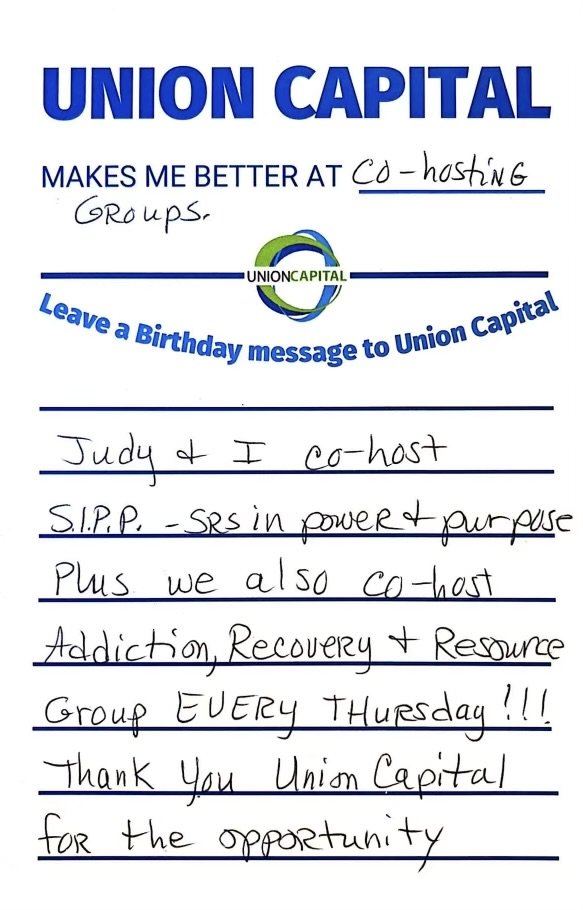 UNION CAPITAL
MAKES ME BETTER AT Co-hosting
Groups.
UNIONCAPITAL
Leave a Birthday message to Union Capital
Judy + I co-host
S.I.P.P. - SRS in power + purpose
Plus we also co-host
Addiction, Recovery + Resource
Group EVERY THursday!!!
Thank You Union Capital
for the opportunity